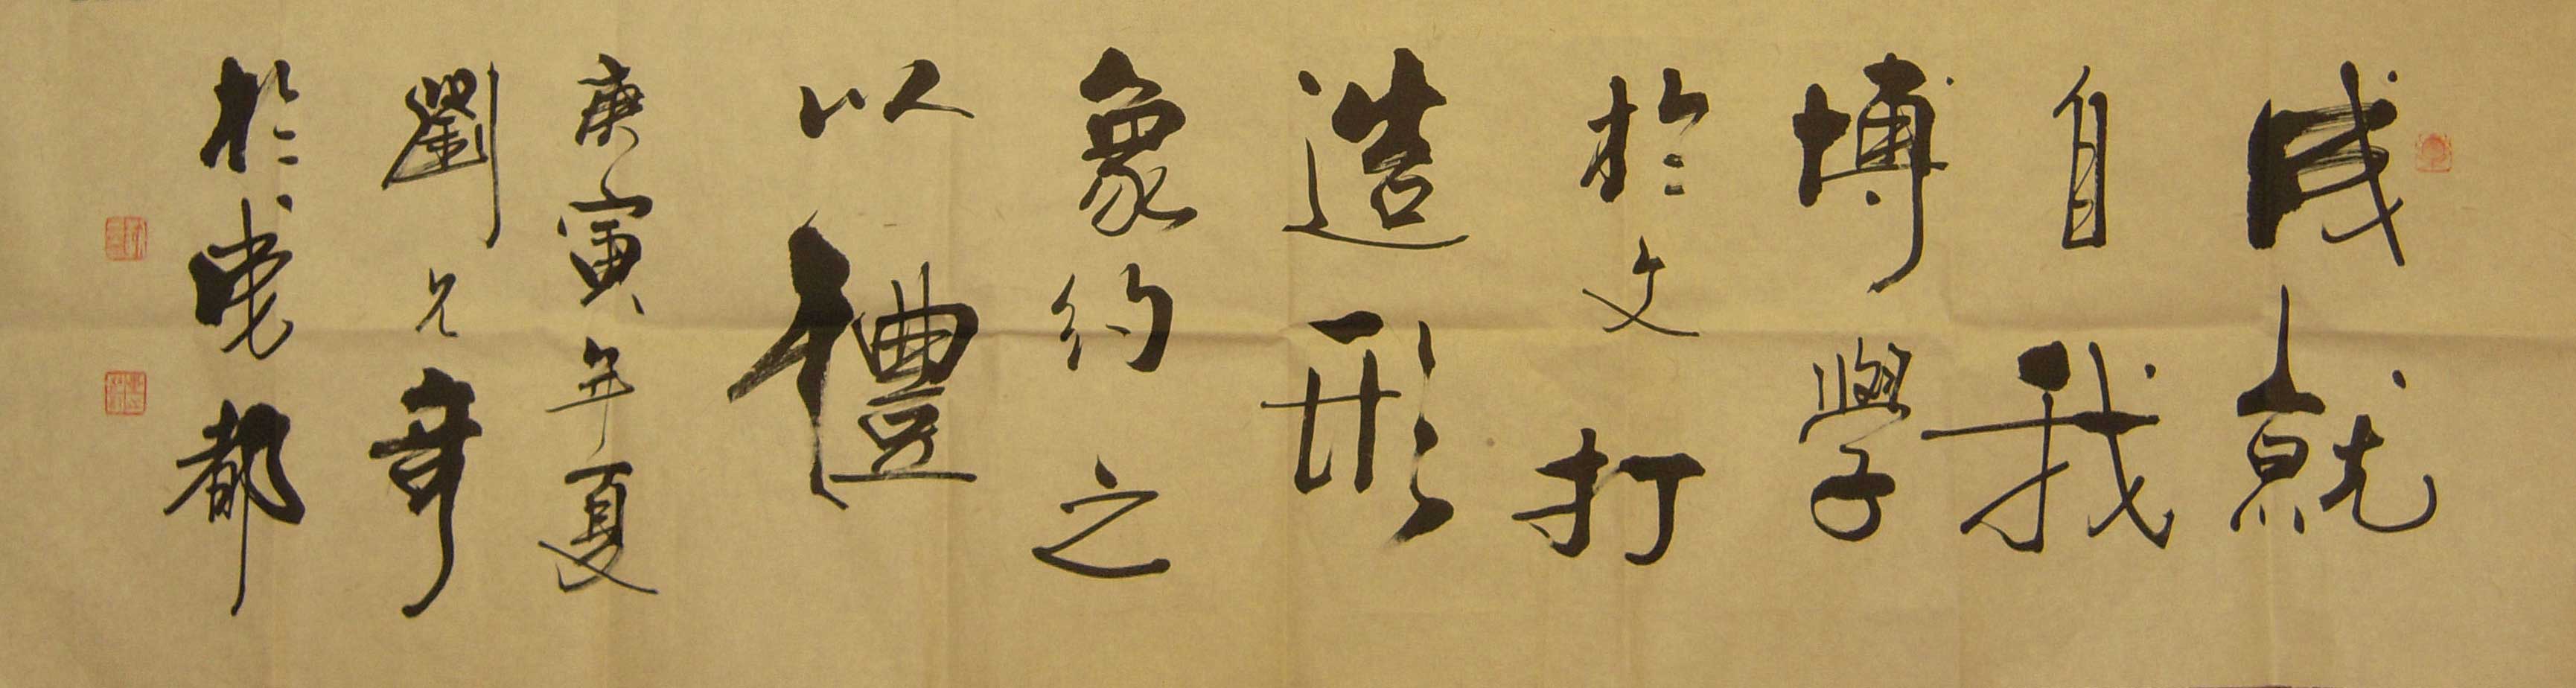 成就
自我
博學
於文打
造形
象約之
以禮
庚寅年夏
劉兄奇
於成都